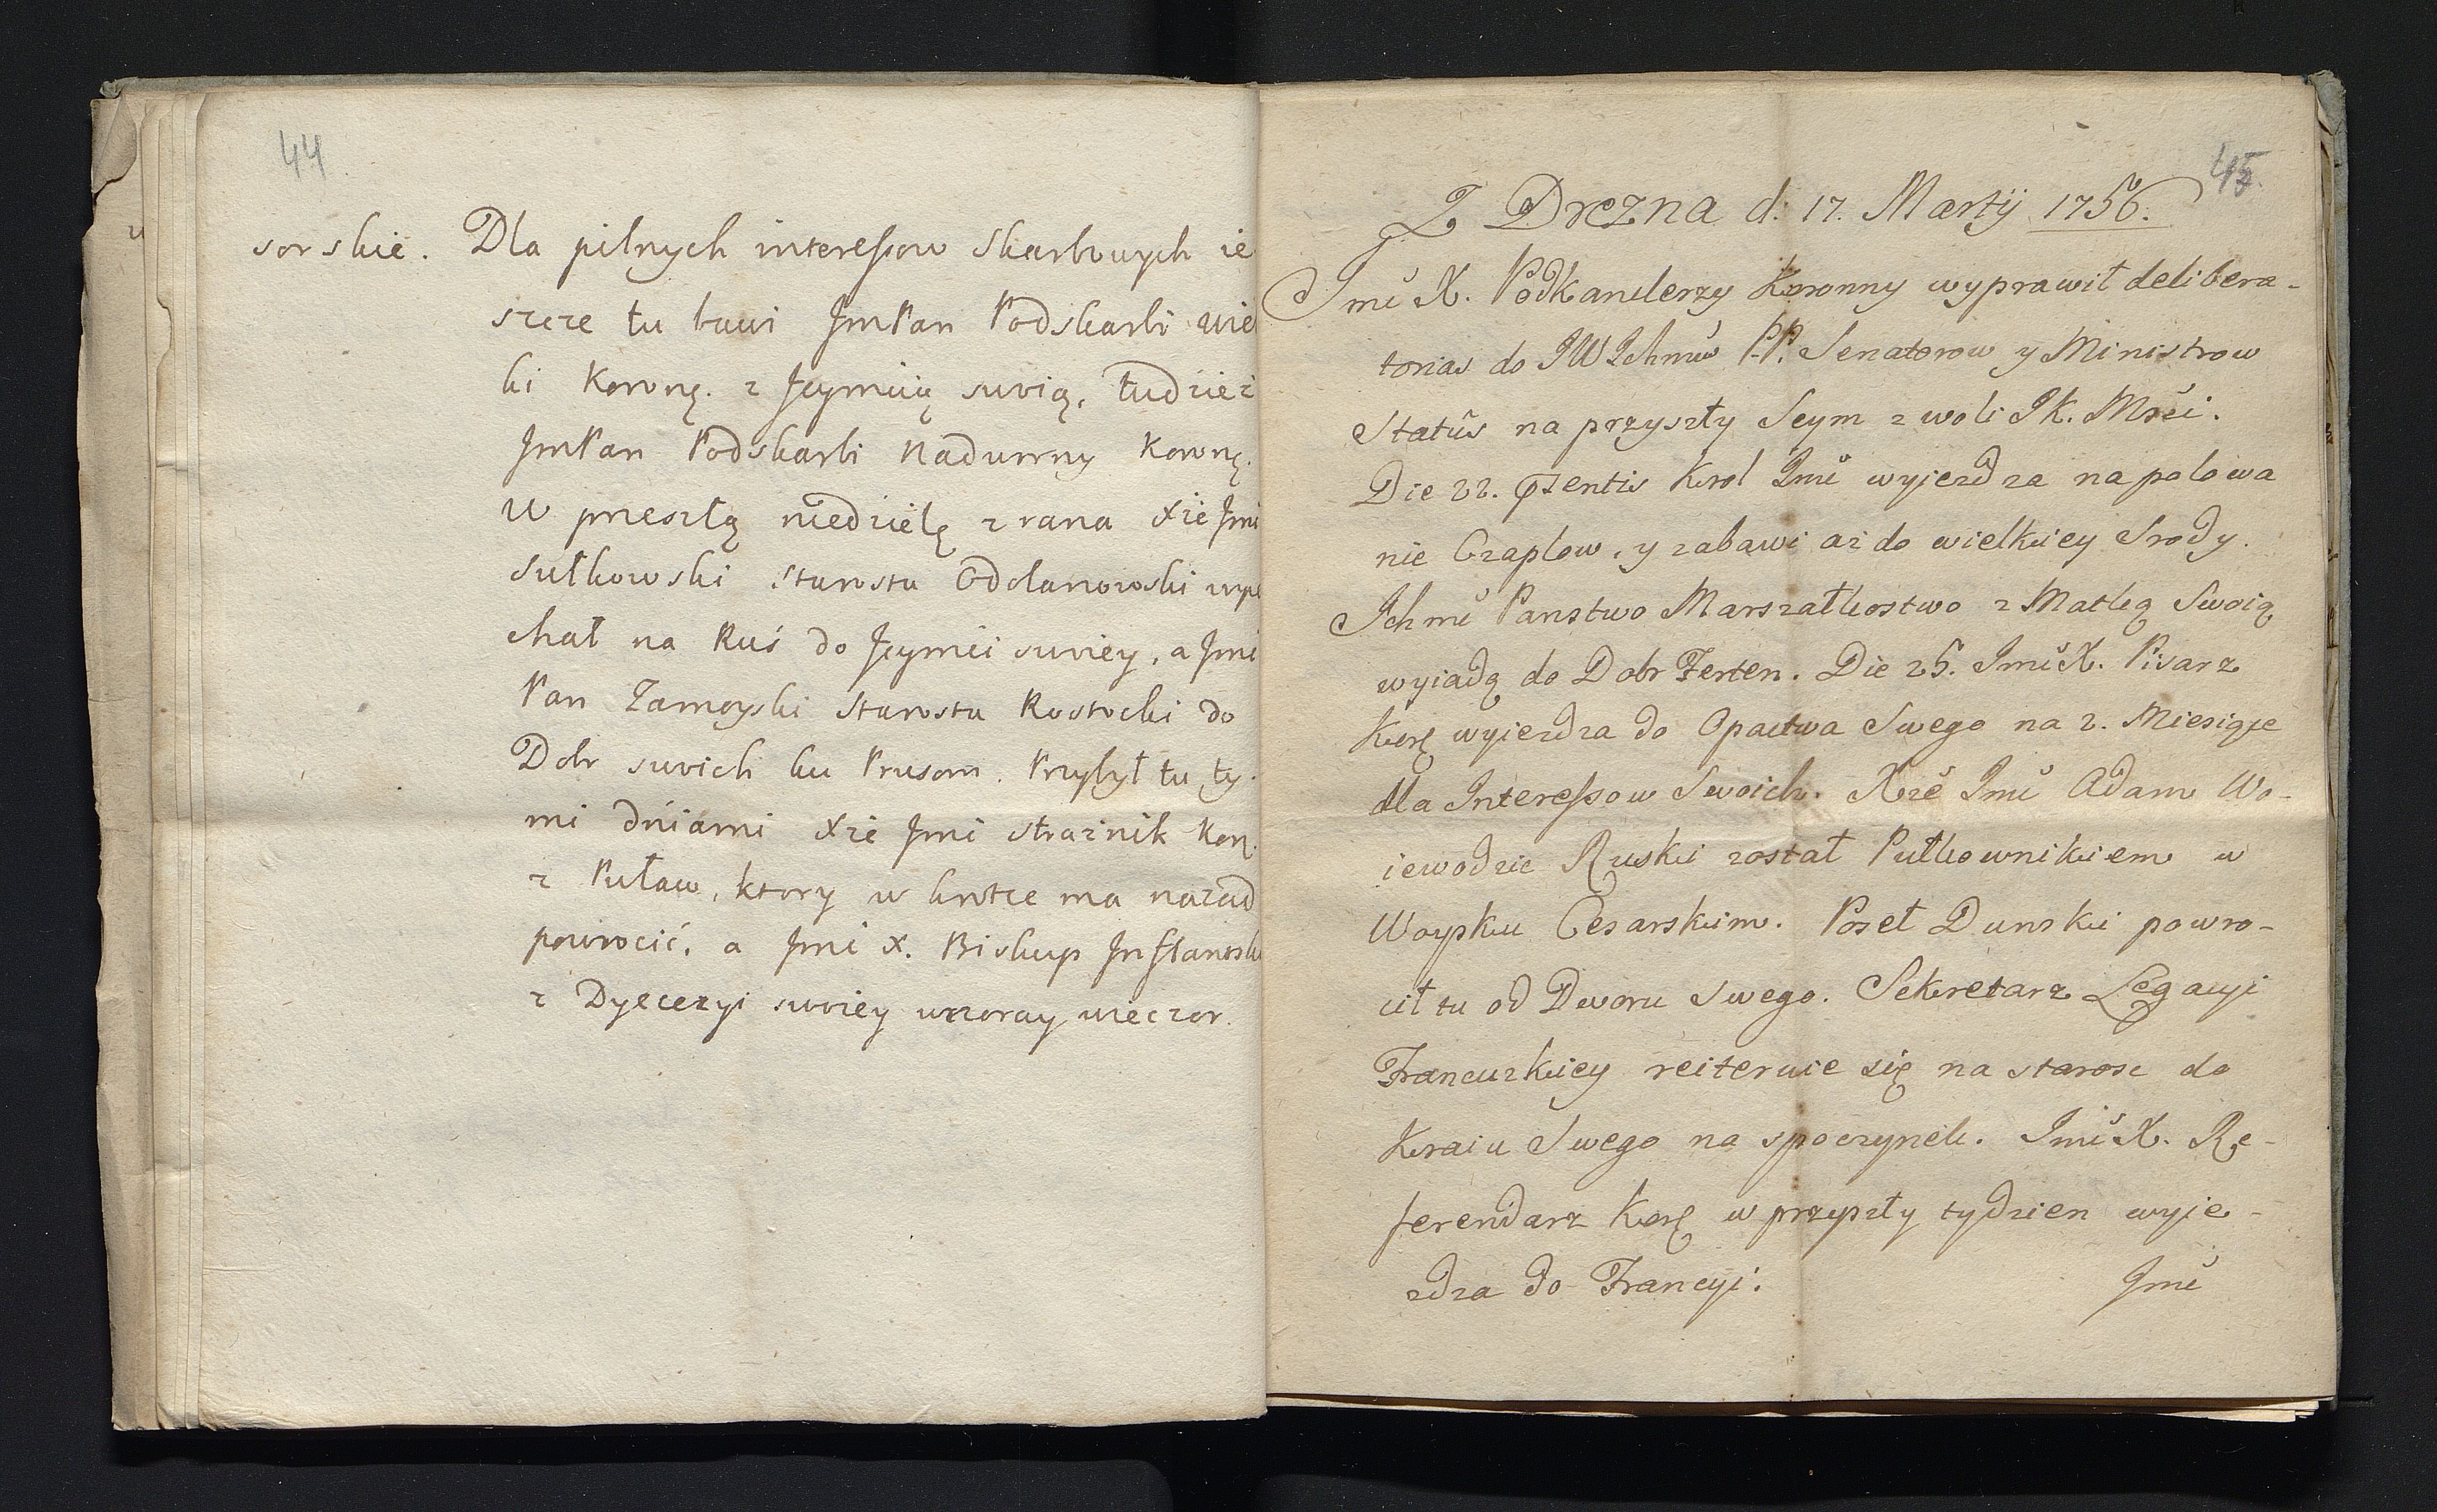 44
sorskie. Dla pilnych interessow Skarbowych ie
szcze tu bawi JmPan Podskarbi wie
ki Koronę. z Jeymcią swoią, tudziez
JmPan Podskarbi Nadworny Koronę.
W przeszłą niedzielę z rana Xże Jmć
Sułkowski Starosta Odolanowski wyie
chał na Ruś do Jeymci swoiey, a Jmć
Pan Zamoyski Starosta Rostocki do
Dobr swoich ku Prusom. Przybył tu ty-
mi dńiami Xże Jmć Strażnik Kor.
z Puław, ktory w krotce ma nazad
powrocić, a Jmć X. Biskup Inflantski
z Dyecezyi swoiey wczoray wieczor.
45.
Z Drezna d. 17. Martij 1756.
Jmć X. Podkanclerzy Koronny wyprawił delibera-
torias do JWIchmćw PP. Senatorow y Ministrow
Status na przyszły Seym z woli JK. Mści.
Die 22. pzentis Krol Jmć wyjezdza na polowa
nie Czaplow, y zabawi aż do wielkiey Srody.
Ichmć Panstwo Marszałkostwo z Matką Swoią
wyiadą do Dobr Ferten. Die 25. Jmć X. Pisarz
Korę wyiezdza do Opactwa Swego na 2. Miesiące
dla Interessow Swoich. Xże Jmć Adam Wo-
iewodzic Ruski został Pułkownikiem w
Woysku Cesarskim. Poseł Dunski powro-
cił tu od Dworu swego. Sekretarz Legacyi
Francuzkiey reiteruie się na starosc do
Kraiu Swego na spoczynek. Jmć X. Re-
ferendarz Korę w przyszły tydzien wyie-
zdza do Francyi.
Jmć